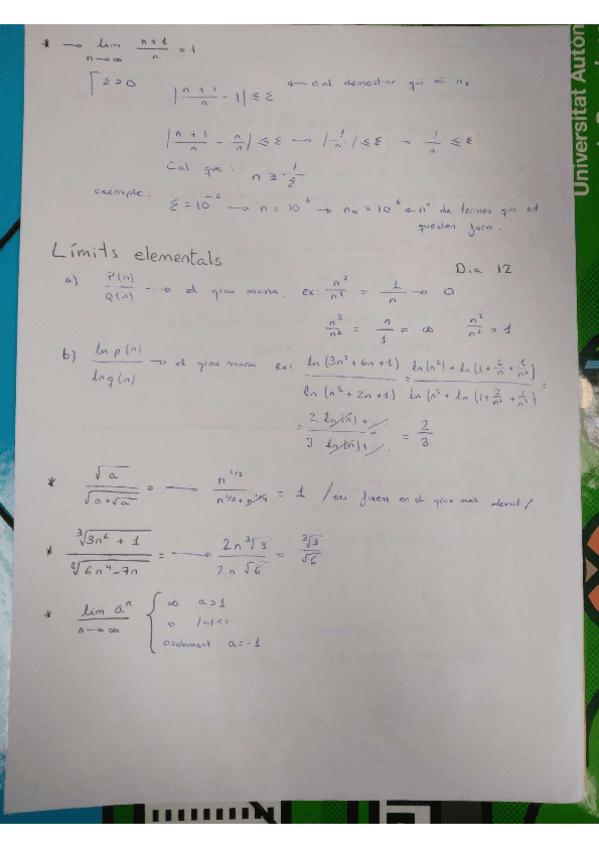 * → lim n→∞ (n+1)/n = 1
ε>0
|(n+1)/n - 1| ≤ ε ← Cal demostrar qui és n₀
|(n+1)/n - n/n| ≤ ε → |1/n| ≤ ε → 1/n ≤ ε
Cal que: n ≥ 1/ε
exemple: ε = 10⁻⁶ → n > 10⁶ → n₀ = 10⁶ ← nº de termes que et
queden fora.
Límits elementals
Dia 12
a) P(n)/Q(n) → el grau mana. ex: n²/n³ = 1/n → 0
n³/n² = n/1 = ∞ n²/n² = 1
b) ln p(n)/ln q(n) → el grau mana ex: ln(3n²+6n+1)/ln(n³+2n+1) = ln(n²)+ln(3+6/n+1/n²)/ln(n³+ln(1+2/n²+1/n³) =
= 2 ln(n)+/3 ln(n)+ = 2/3
* √a/√(a+√a) = → n^(1/2)/(n^(1/2)+n^(1/4)) = 1 /ens fixem en el grau més elevat/
* ∛(3n⁶+1)/²√(6n⁴-7n) = → 2n ∛3/2n √6 = ∛3/√6
* lim n→∞ aⁿ { ∞ a>1
0 |a|<1
oscil·lant a=-1
Universitat Autòn